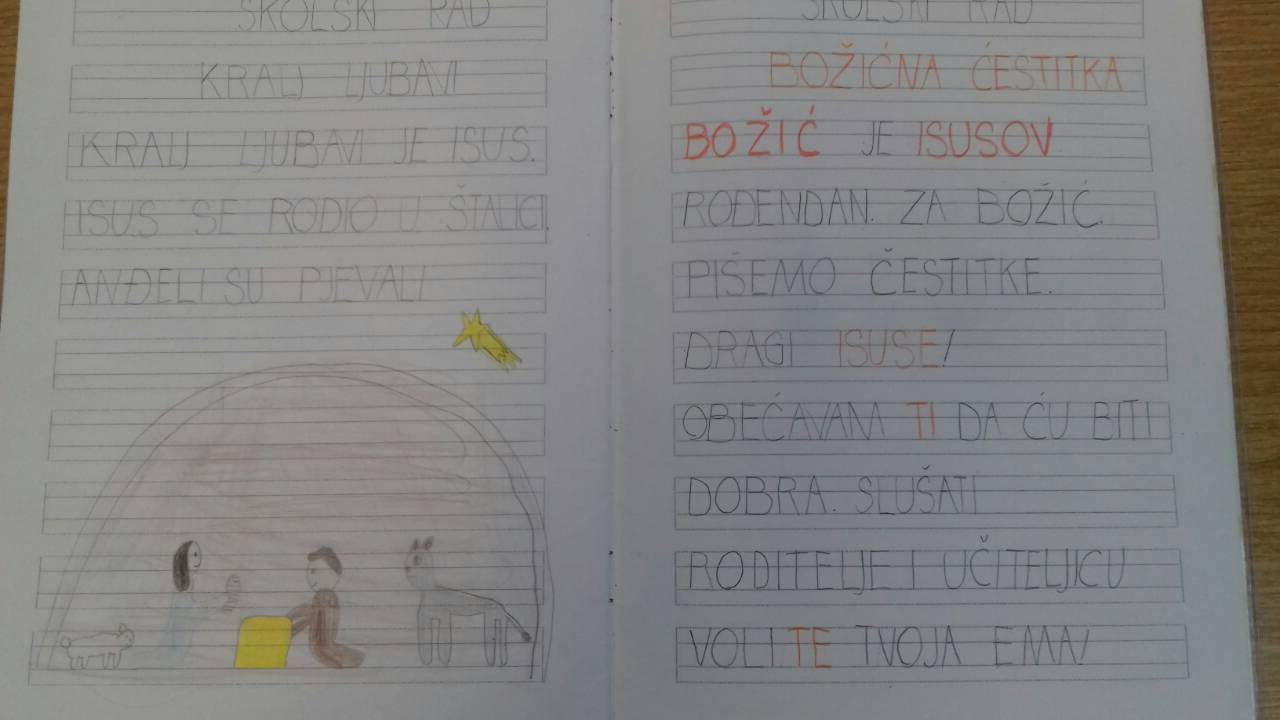 ŠKOLSKI RAD
KRALJ LJUBAVI
KRALJ LJUBAVI JE ISUS.
ISUS SE RODIO U ŠTALICI.
ANĐELI SU PJEVALI
ŠKOLSKI RAD
BOŽIĆNA ĆESTITKA
BOŽIĆ JE ISUSOV
ROĐENDAN. ZA BOŽIĆ.
PIŠEMO ČESTITKE.
DRAGI ISUSE!
OBEĆAVAM TI DA ĆU BITI
DOBRA. SLUŠATI
RODITELJE I UČITELJICU
VOLI TE TVOJA EMA!